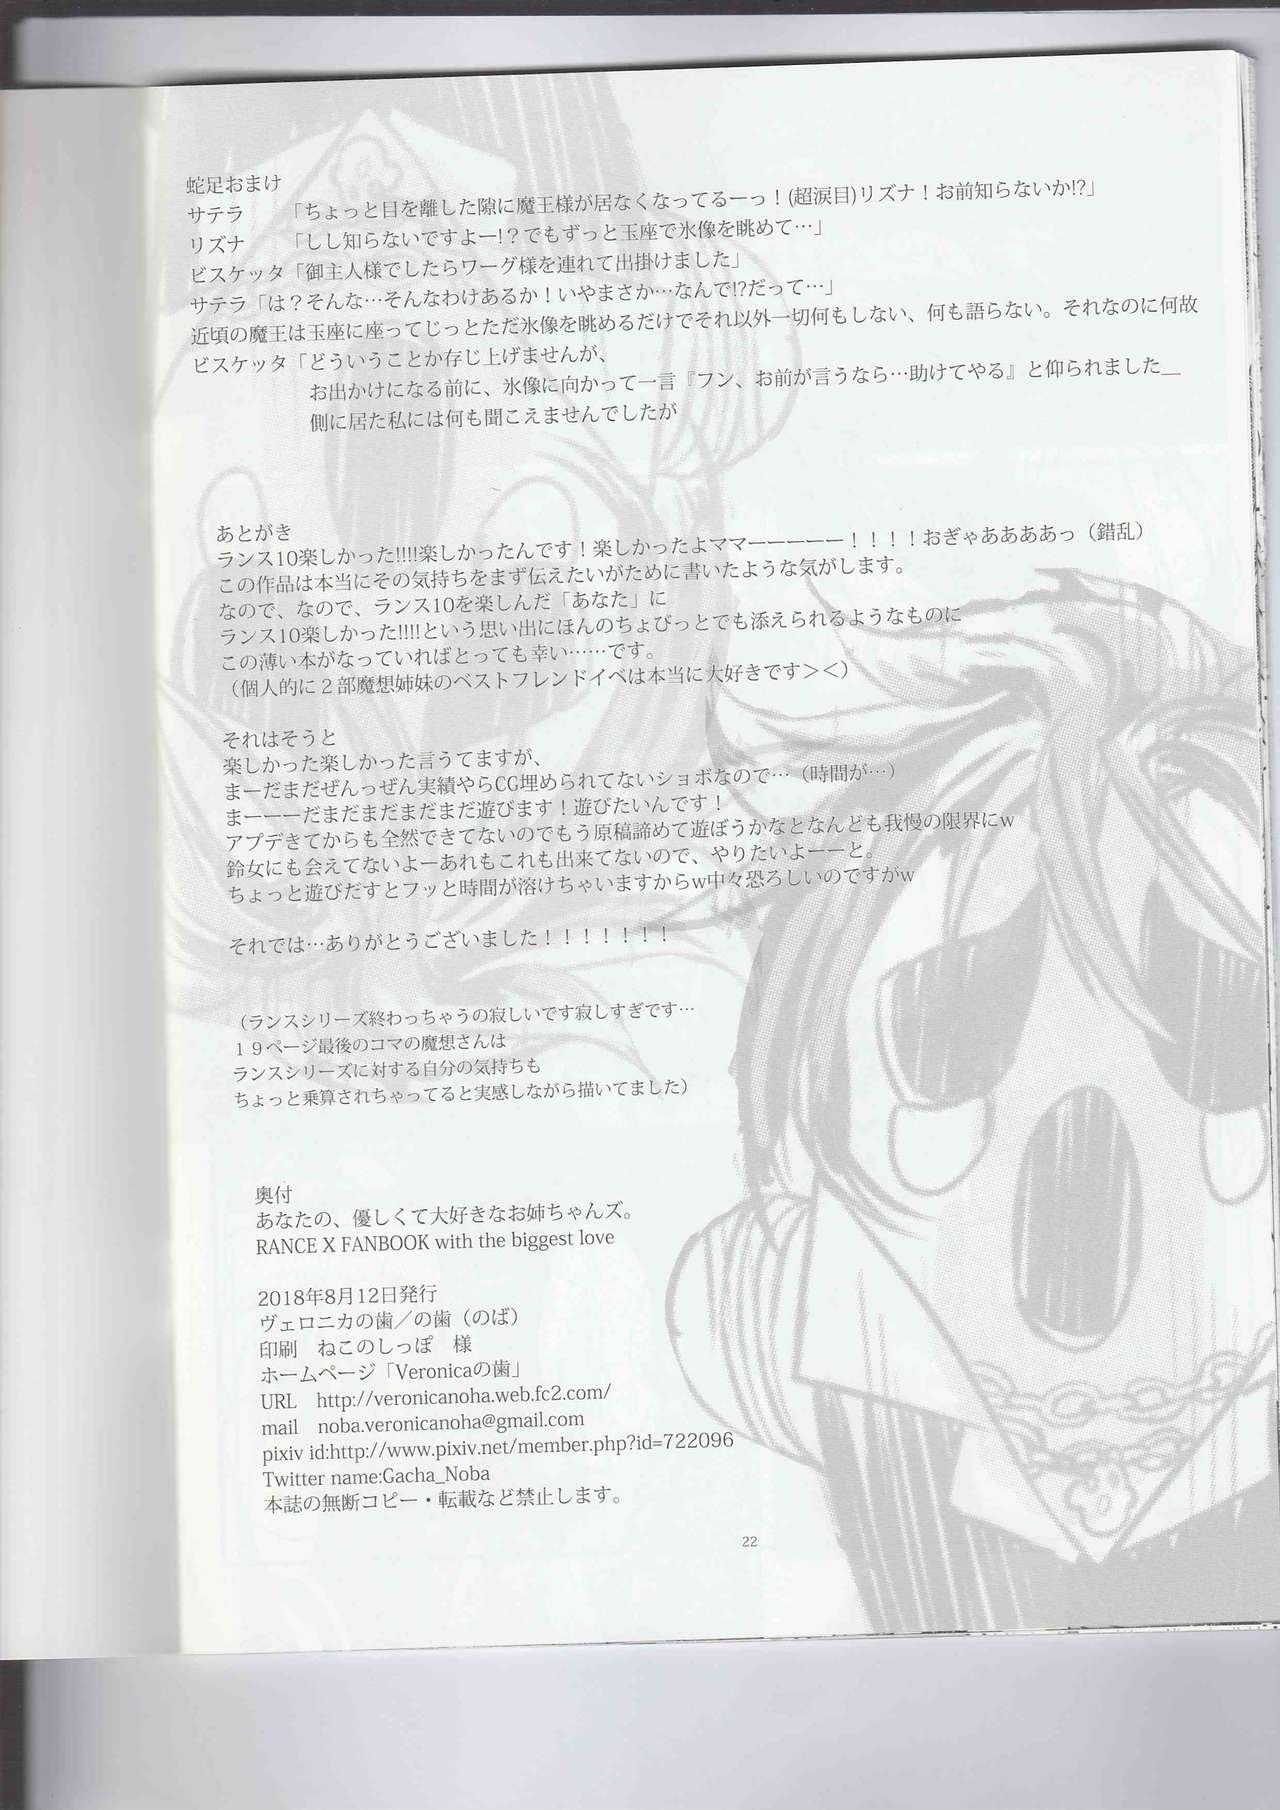 蛇足おまけ
サテラ　　「ちょっと目を離した隙に魔王様が居なくなってるーっ！(超涙目)リズナ！お前知らないか!?」
リズナ　　「しし知らないですよー!？でもずっと玉座で氷像を眺めて…」
ビスケッタ「御主人様でしたらワーグ様を連れて出掛けました」
サテラ「は？そんな…そんなわけあるか！いやまさか…なんで!?だって…」
近頃の魔王は玉座に座ってじっとただ氷像を眺めるだけでそれ以外一切何もしない、何も語らない。それなのに何故
ビスケッタ「どういうことか存じ上げませんが、
お出かけになる前に、氷像に向かって一言『フン、お前が言うなら…助けてやる』と仰られました__
側に居た私には何も聞こえませんでしたが
あとがき
ランス10楽しかった!!!!楽しかったんです！楽しかったよママーーーーー！！！！おぎゃああああっ（錯乱）
この作品は本当にその気持ちをまず伝えたいがために書いたような気がします。
なので、なので、ランス10を楽しんだ「あなた」に
ランス10楽しかった!!!!という思い出にほんのちょびっとでも添えられるようなものに
この薄い本がなっていればとっても幸い……です。
（個人的に２部魔想姉妹のベストフレンドイベは本当に大好きです＞＜）
それはそうと
楽しかった楽しかった言うてますが、
まーだまだぜんっぜん実績やらCG埋められてないショボなので…（時間が…）
まーーーだまだまだまだまだ遊びます！遊びたいんです！
アプデきてからも全然できてないのでもう原稿諦めて遊ぼうかなとなんども我慢の限界にw
鈴女にも会えてないよーあれもこれも出来てないので、やりたいよーーと。
ちょっと遊びだすとフッと時間が溶けちゃいますからw中々恐ろしいのですがw
それでは…ありがとうございました！！！！！！！
（ランスシリーズ終わっちゃうの寂しいです寂しすぎです…
１９ページ最後のコマの魔想さんは
ランスシリーズに対する自分の気持ちも
ちょっと乗算されちゃってると実感しながら描いてました）
奥付
あなたの、優しくて大好きなお姉ちゃんズ。
RANCE X FANBOOK with the biggest love
2018年8月12日発行
ヴェロニカの歯／の歯（のば）
印刷　ねこのしっぽ　様
ホームページ「Veronicaの歯」
URL　http://veronicanoha.web.fc2.com/
mail　noba.veronicanoha@gmail.com
pixiv id:http://www.pixiv.net/member.php?id=722096
Twitter name:Gacha_Noba
本誌の無断コピー・転載など禁止します。
22